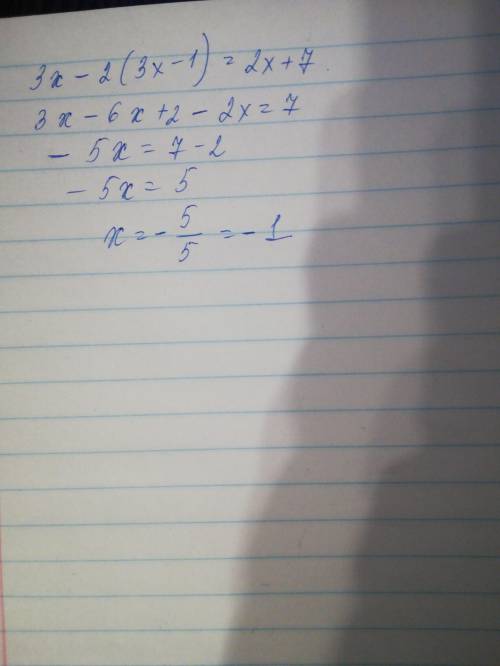 3x - 2(3x-1) = 2x+7
3x - 6x + 2 - 2x = 7
- 5x = 7 - 2
- 5x = 5
x = - 5/5 = - 1